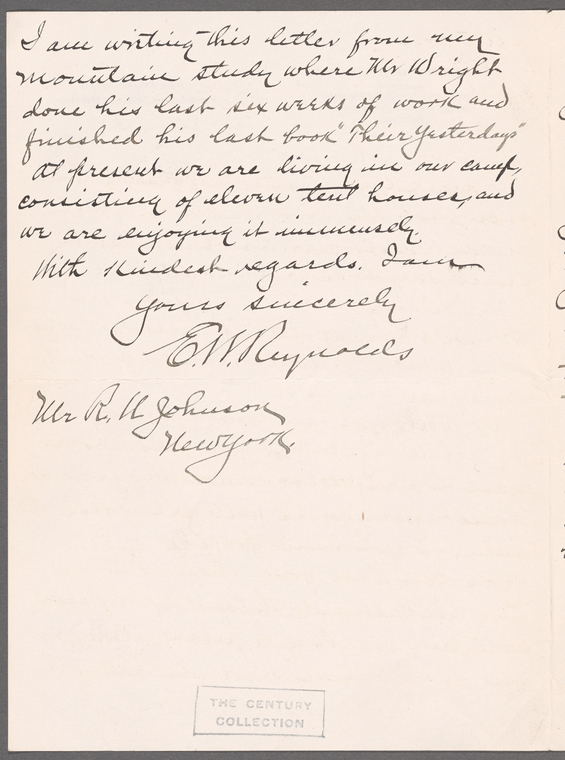 I am writing this letter from my
mountain study where Mr Wright
done his last six weeks of work and
finished his last book "Their Yesterdays"
At present we are living in our camp,
consisting of eleven tent houses, and
we are enjoying it immensely.
With kindest regards. I am
yours sincerely
E. W. Reynolds
Mr R. U Johnson
New York.
THE CENTURY
COLLECTION